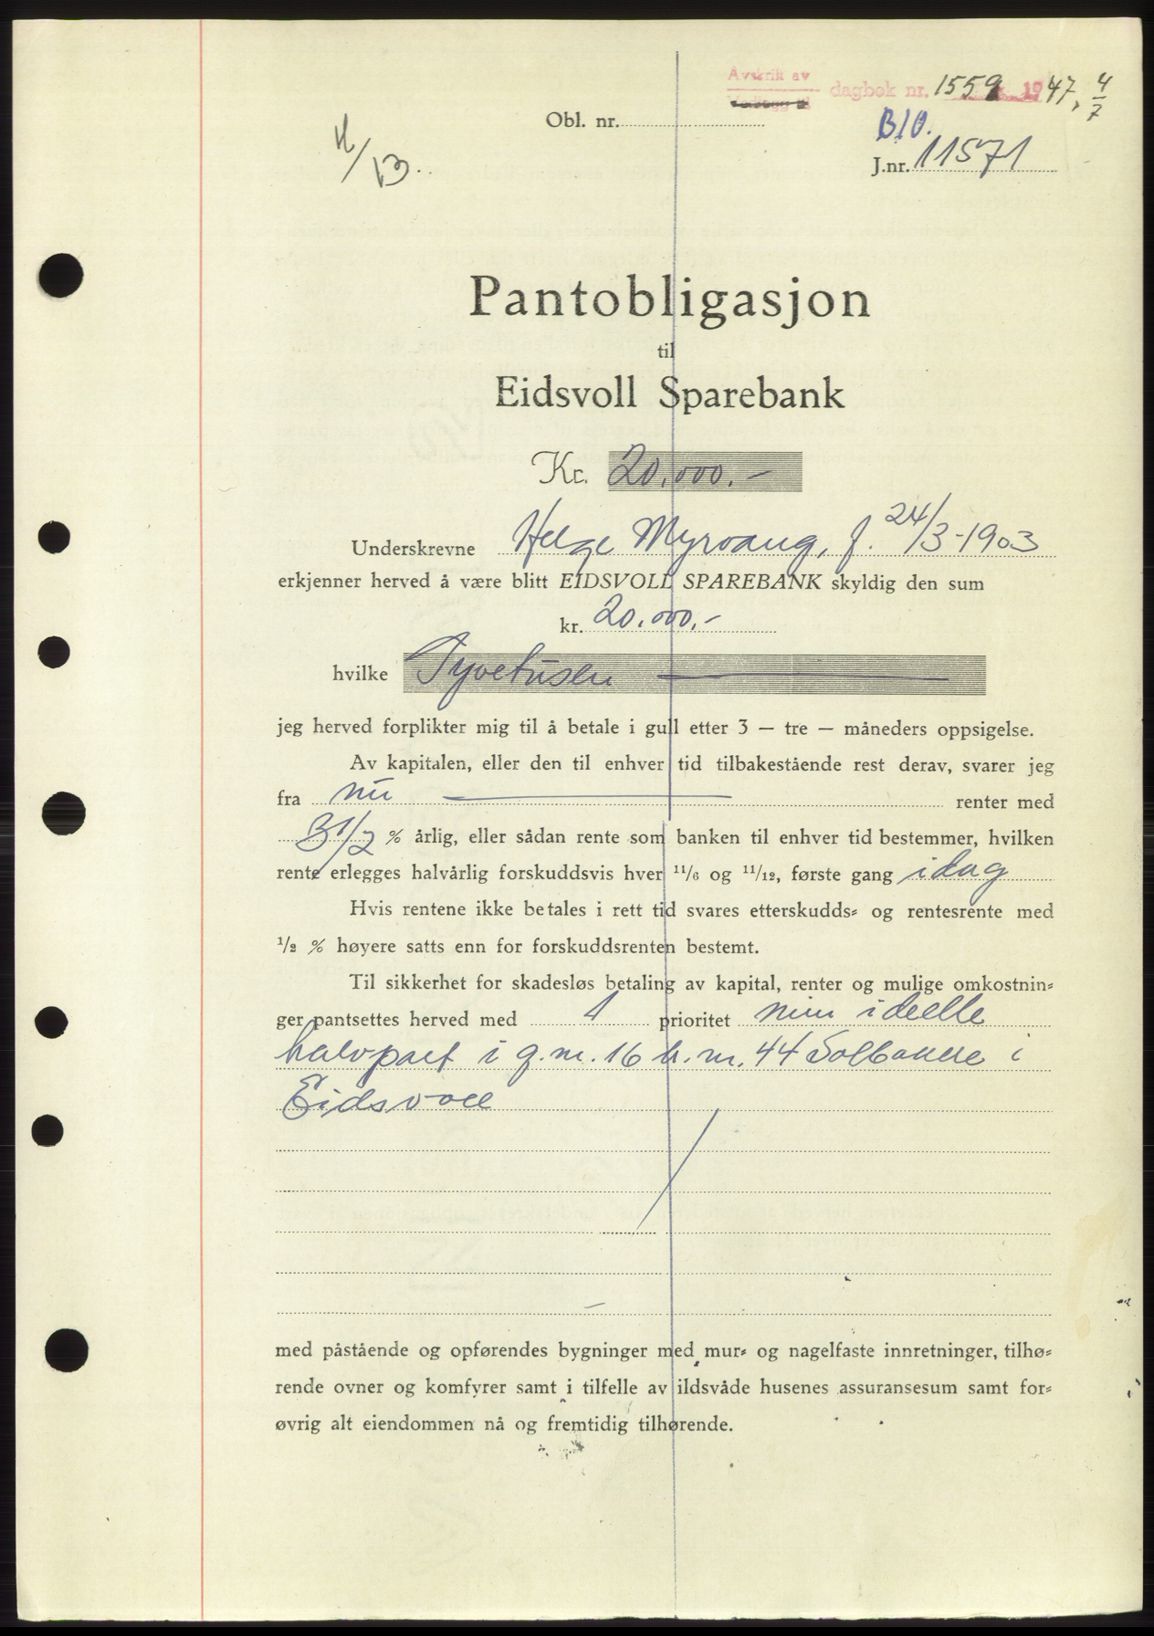 Avskrift av
dagbok nr. 1559 1947, 4/7
Obl. nr.
B10.
J.nr. 11571
Pantobligasjon
til
Eidsvoll Sparebank
Kr. 20.000.-
Underskrevne Helge Myrvang, f. 24/3-1903
erkjenner herved å være blitt EIDSVOLL SPAREBANK skyldig den sum
kr. 20.000.-
hvilke Tyvetusen
jeg herved forplikter mig til å betale i gull etter 3 — tre — måneders oppsigelse.
Av kapitalen, eller den til enhver tid tilbakestående rest derav, svarer jeg
fra nu renter med
3 1/2 % årlig, eller sådan rente som banken til enhver tid bestemmer, hvilken
rente erlegges halvårlig forskuddsvis hver 11/6 og 11/12, første gang idag
Hvis rentene ikke betales i rett tid svares etterskudds- og rentesrente med
1/2 % høyere satts enn for forskuddsrenten bestemt.
Til sikkerhet for skadesløs betaling av kapital, renter og mulige omkostnin-
ger pantsettes herved med 1 prioritet min ideelle
halvpart i g.nr. 16 b.nr. 44 Solbakke i
Eidsvoll
med påstående og opførendes bygninger med mur- og nagelfaste innretninger, tilhø-
rende ovner og komfyrer samt i tilfelle av ildsvåde husenes assuransesum samt for-
øvrig alt eiendommen nå og fremtidig tilhørende.